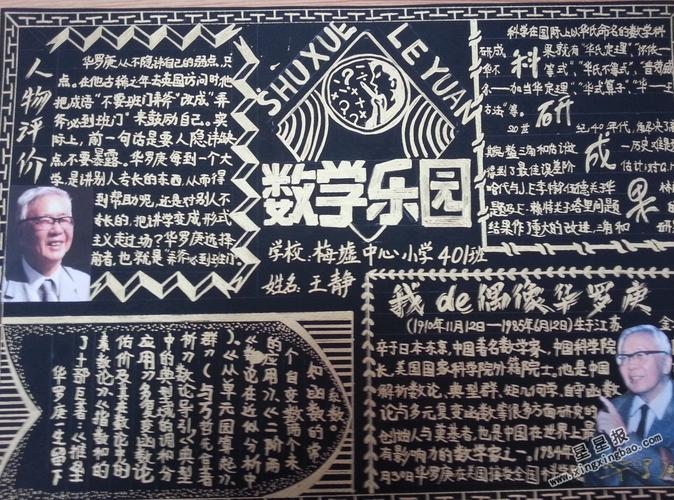 人物评价
华罗庚从不隐讳自己的弱点,只
点。在他古稀之年去英国访问时他
把成语“不要班门弄斧”改成“弄
斧必到班门”来鼓励自己。实
际上,前一句话是要人隐讳缺
点,不要暴露。华罗庚每到一个大
学,是讲别人专长的东西,从而得
到帮助呢,还是对别人不
专长的,把讲学变成形式
主义走过场?华罗庚选择
前者,也就是“弄斧必到班门”
SHUXUE LEYUAN
数学乐园
学校:梅墟中心小学401班
姓名:王静
科研成果
科学在国际上以华氏命名的数学科
研成果就有“华氏定理”、“怀依—
华不等式”、“华氏不等式”、“普劳威
尔—加当华定理”、“华氏算子”、“华—王
方法”等。
20世纪40年代,
得到了最佳误差阶
结果作了重大的改进,三角和
我de偶像华罗庚
(1910年11月12日—1985年6月12日)生于江苏金
卒于日本东京,中国著名数学家,中国科学院
长,美国国家科学院外籍院士。他是中国
解析数论、典型群、矩阵几何学、自守函数
论与多元复变函数等很多方面研究的
创始人与奠基者,也是中国在世界上最
有影响力的数学家之一。1984年
月30日华罗庚在美国接受全国科
华罗庚一生留下
了十部巨著:《堆垒
素数论》、《指数和的
估价及其在数论中的
应用》、《多复变函数论
中的典型域的调和分
析》、《数论导引》、《典型
群》(与万哲先合著)
、《从单位圆谈起》、
《数论在近似分析中
的应用》、《二阶两
个自变数两个未
知函数的常
系数。
星星报
www.xingxingbao.com